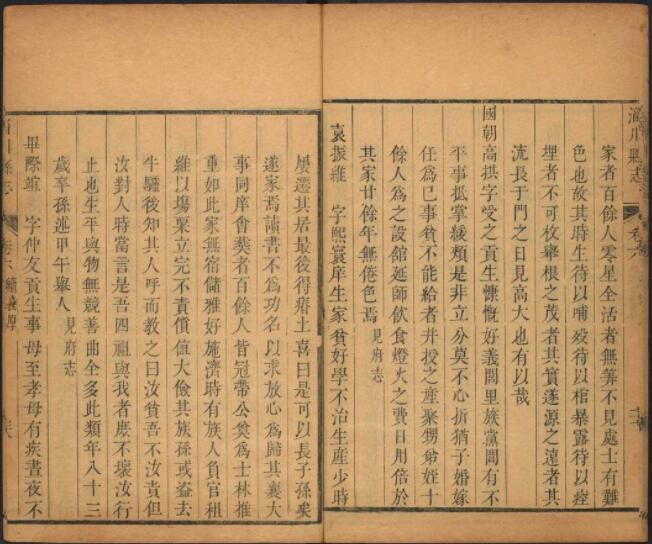 淄川縣志
卷六
家者百餘人零星全活者無筭不見處士有難
色也故其時生待以哺歿待以棺暴露待以瘞
埋者不可枚舉根之茂者其實遂源之遠者其
流長于門之日見高大也有以哉
國朝高拱字受之貢生慷慨好義閭里族黨間有不
平事抵掌緩頰是非立分莫不心折猶子婚嫁
任為己事貧不能給者并授之產聚甥弟姪十
餘人為之設館延師飲食燈火之費日用倍於
其家廿餘年無倦色焉 見府志
袁振雞 字熙寰庠生家貧好學不治生產少時
屢遷其居最後得瘠土喜曰是可以長子孫矣
遂家焉讀書不為功名以求放心為歸其襄大
事同庠會葬者百餘人皆冠帶公奠為士林推
重如此家無宿儲雅好施濟時有族人負官租
雞以塲粟立完不責償值大儉其族孫或盜去
牛驢後知其人呼而教之曰汝貧吾不汝責但
汝對人時當言是吾四祖與我者庶不壞汝行
止也生平與物無競善曲全多此類年八十三
歲卒孫述甲午舉人 見府志
畢際竩 字仲友貢生事母至孝母有疾晝夜不
淄川縣志
卷六 續襄厚